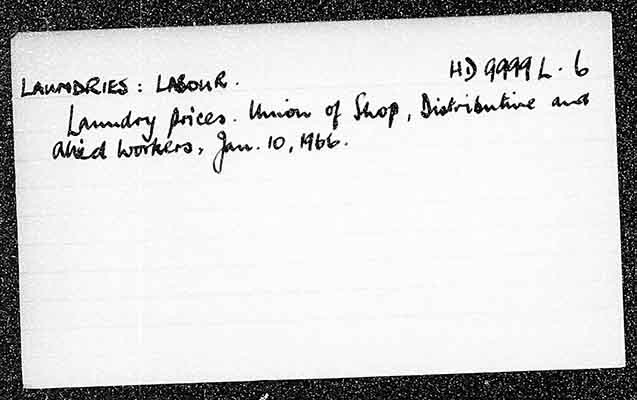 LAUNDRIES: LABOUR. HD 9999 L. 6
Laundry prices. Union of Shop, Distributive and
Allied Workers, Jan. 10, 1966.